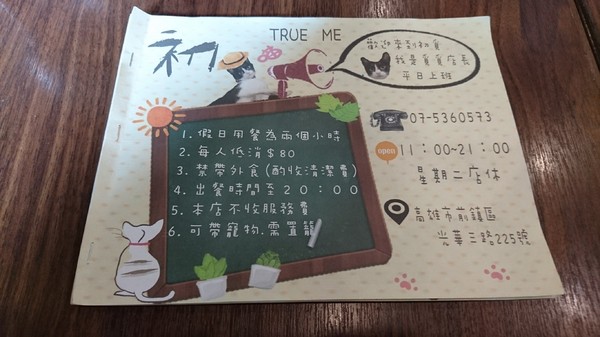 初
TRUE ME
歡迎來到初覓
我是覓覓店長
平日上班
1. 假日用餐為兩個小時
2. 每人低消$80
3. 禁帶外食(酌收清潔費)
4. 出餐時間至20:00
5. 本店不收服務費
6. 可帶寵物.需置籠
07-5360573
open
11:00~21:00
星期二店休
高雄市前鎮區
光華三路225號